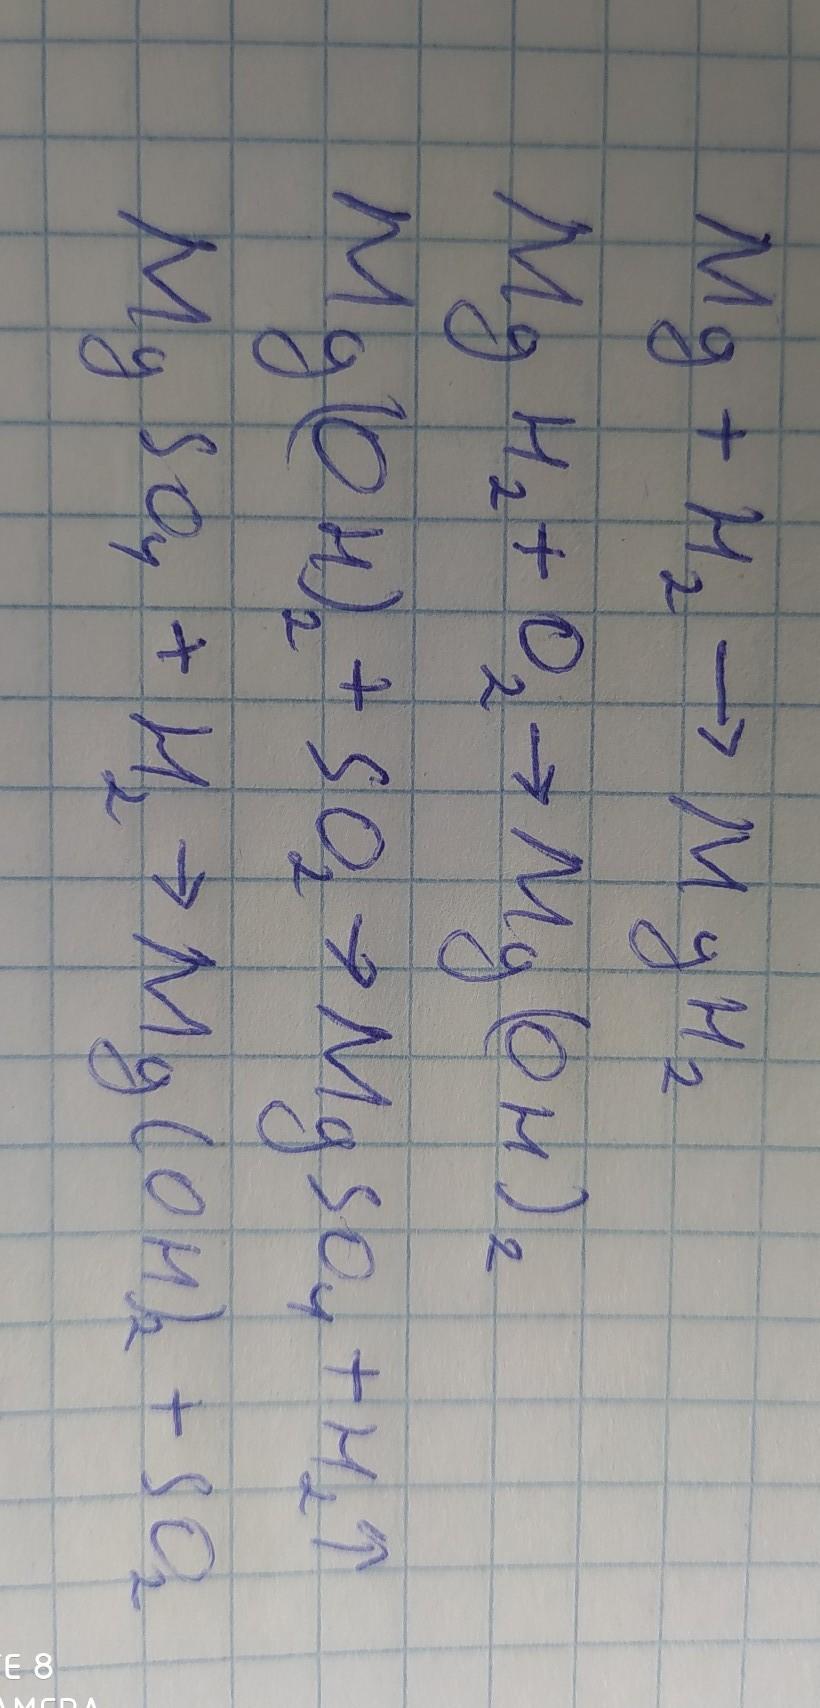 Mg + H₂ → MgH₂
MgH₂ + O₂ → Mg(OH)₂
Mg(OH)₂ + SO₂ → MgSO₄ + H₂↑
MgSO₄ + H₂ → Mg(OH)₂ + SO₂
E 8
AMERA